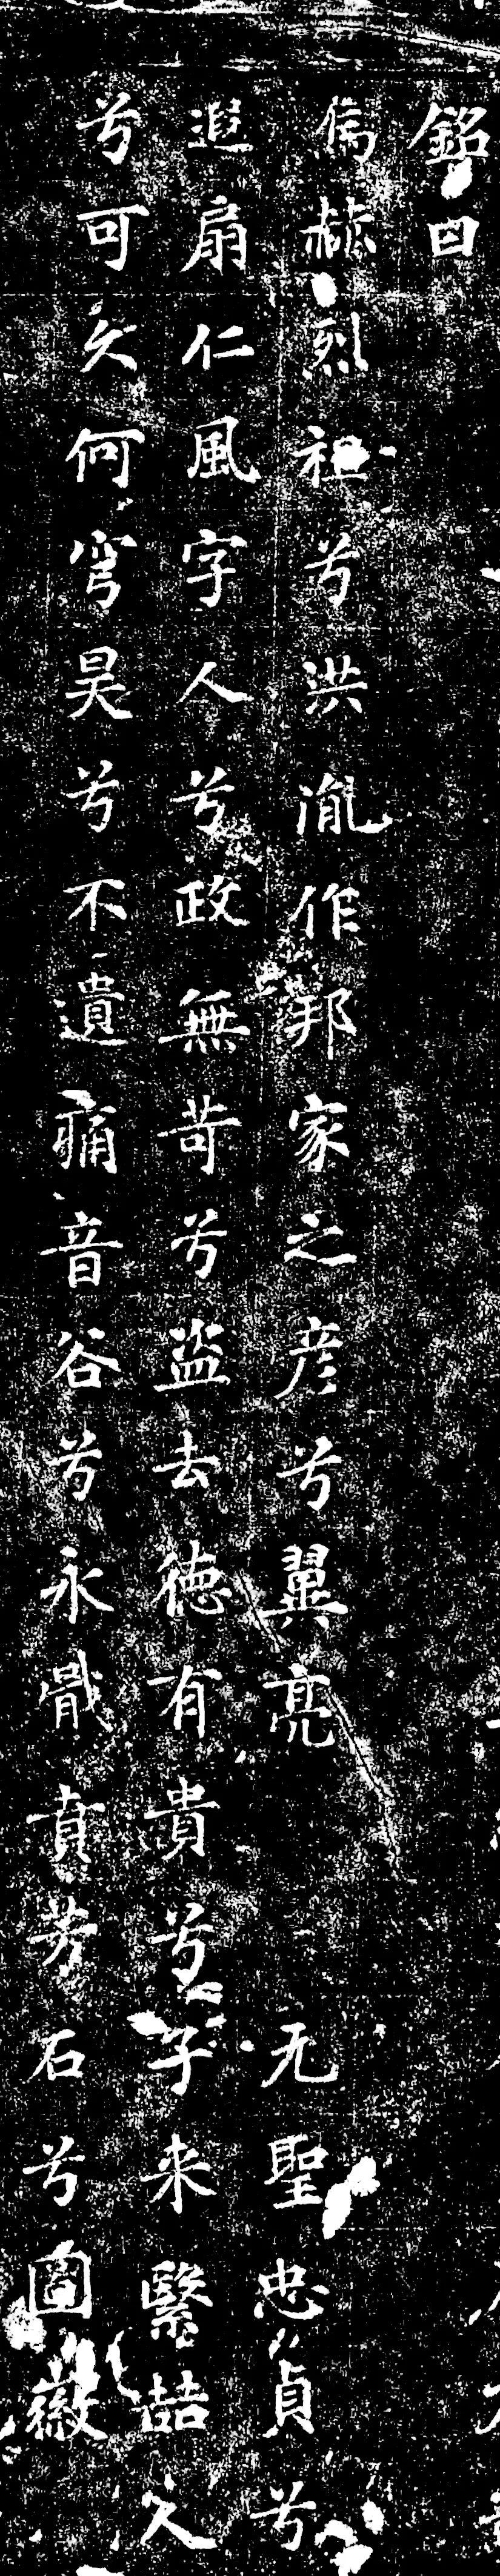 銘曰
雋赫烈祖兮洪胤作邦家之彦兮翼亮無聖忠貞兮
遐扇仁風字人兮政無苛兮盜去德有貴兮子来緊喆人
兮可久何穹昊兮不遺痛音谷兮永戢貞芳石兮圖徽